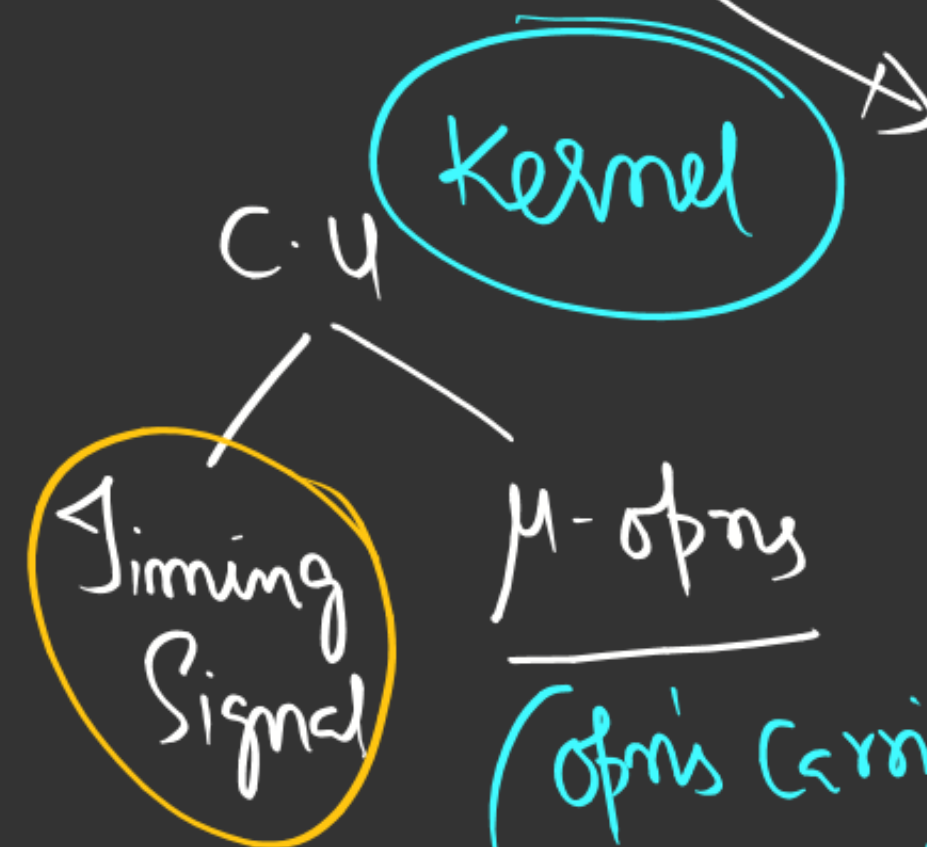 Kernel
C.U
Timing
Signal
μ-opns
(opn's Carri